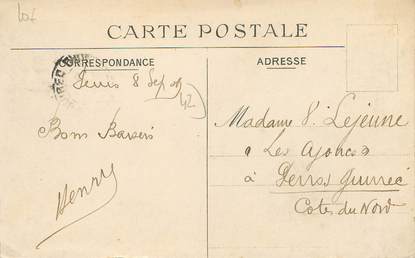 CARTE POSTALE
CORRESPONDANCE
ADRESSE
8 Sep
42
Bons Baisers
Henry
Madame V. Lejeune
"Les Ajoncs"
à Perros Guirrec
Cotes du Nord